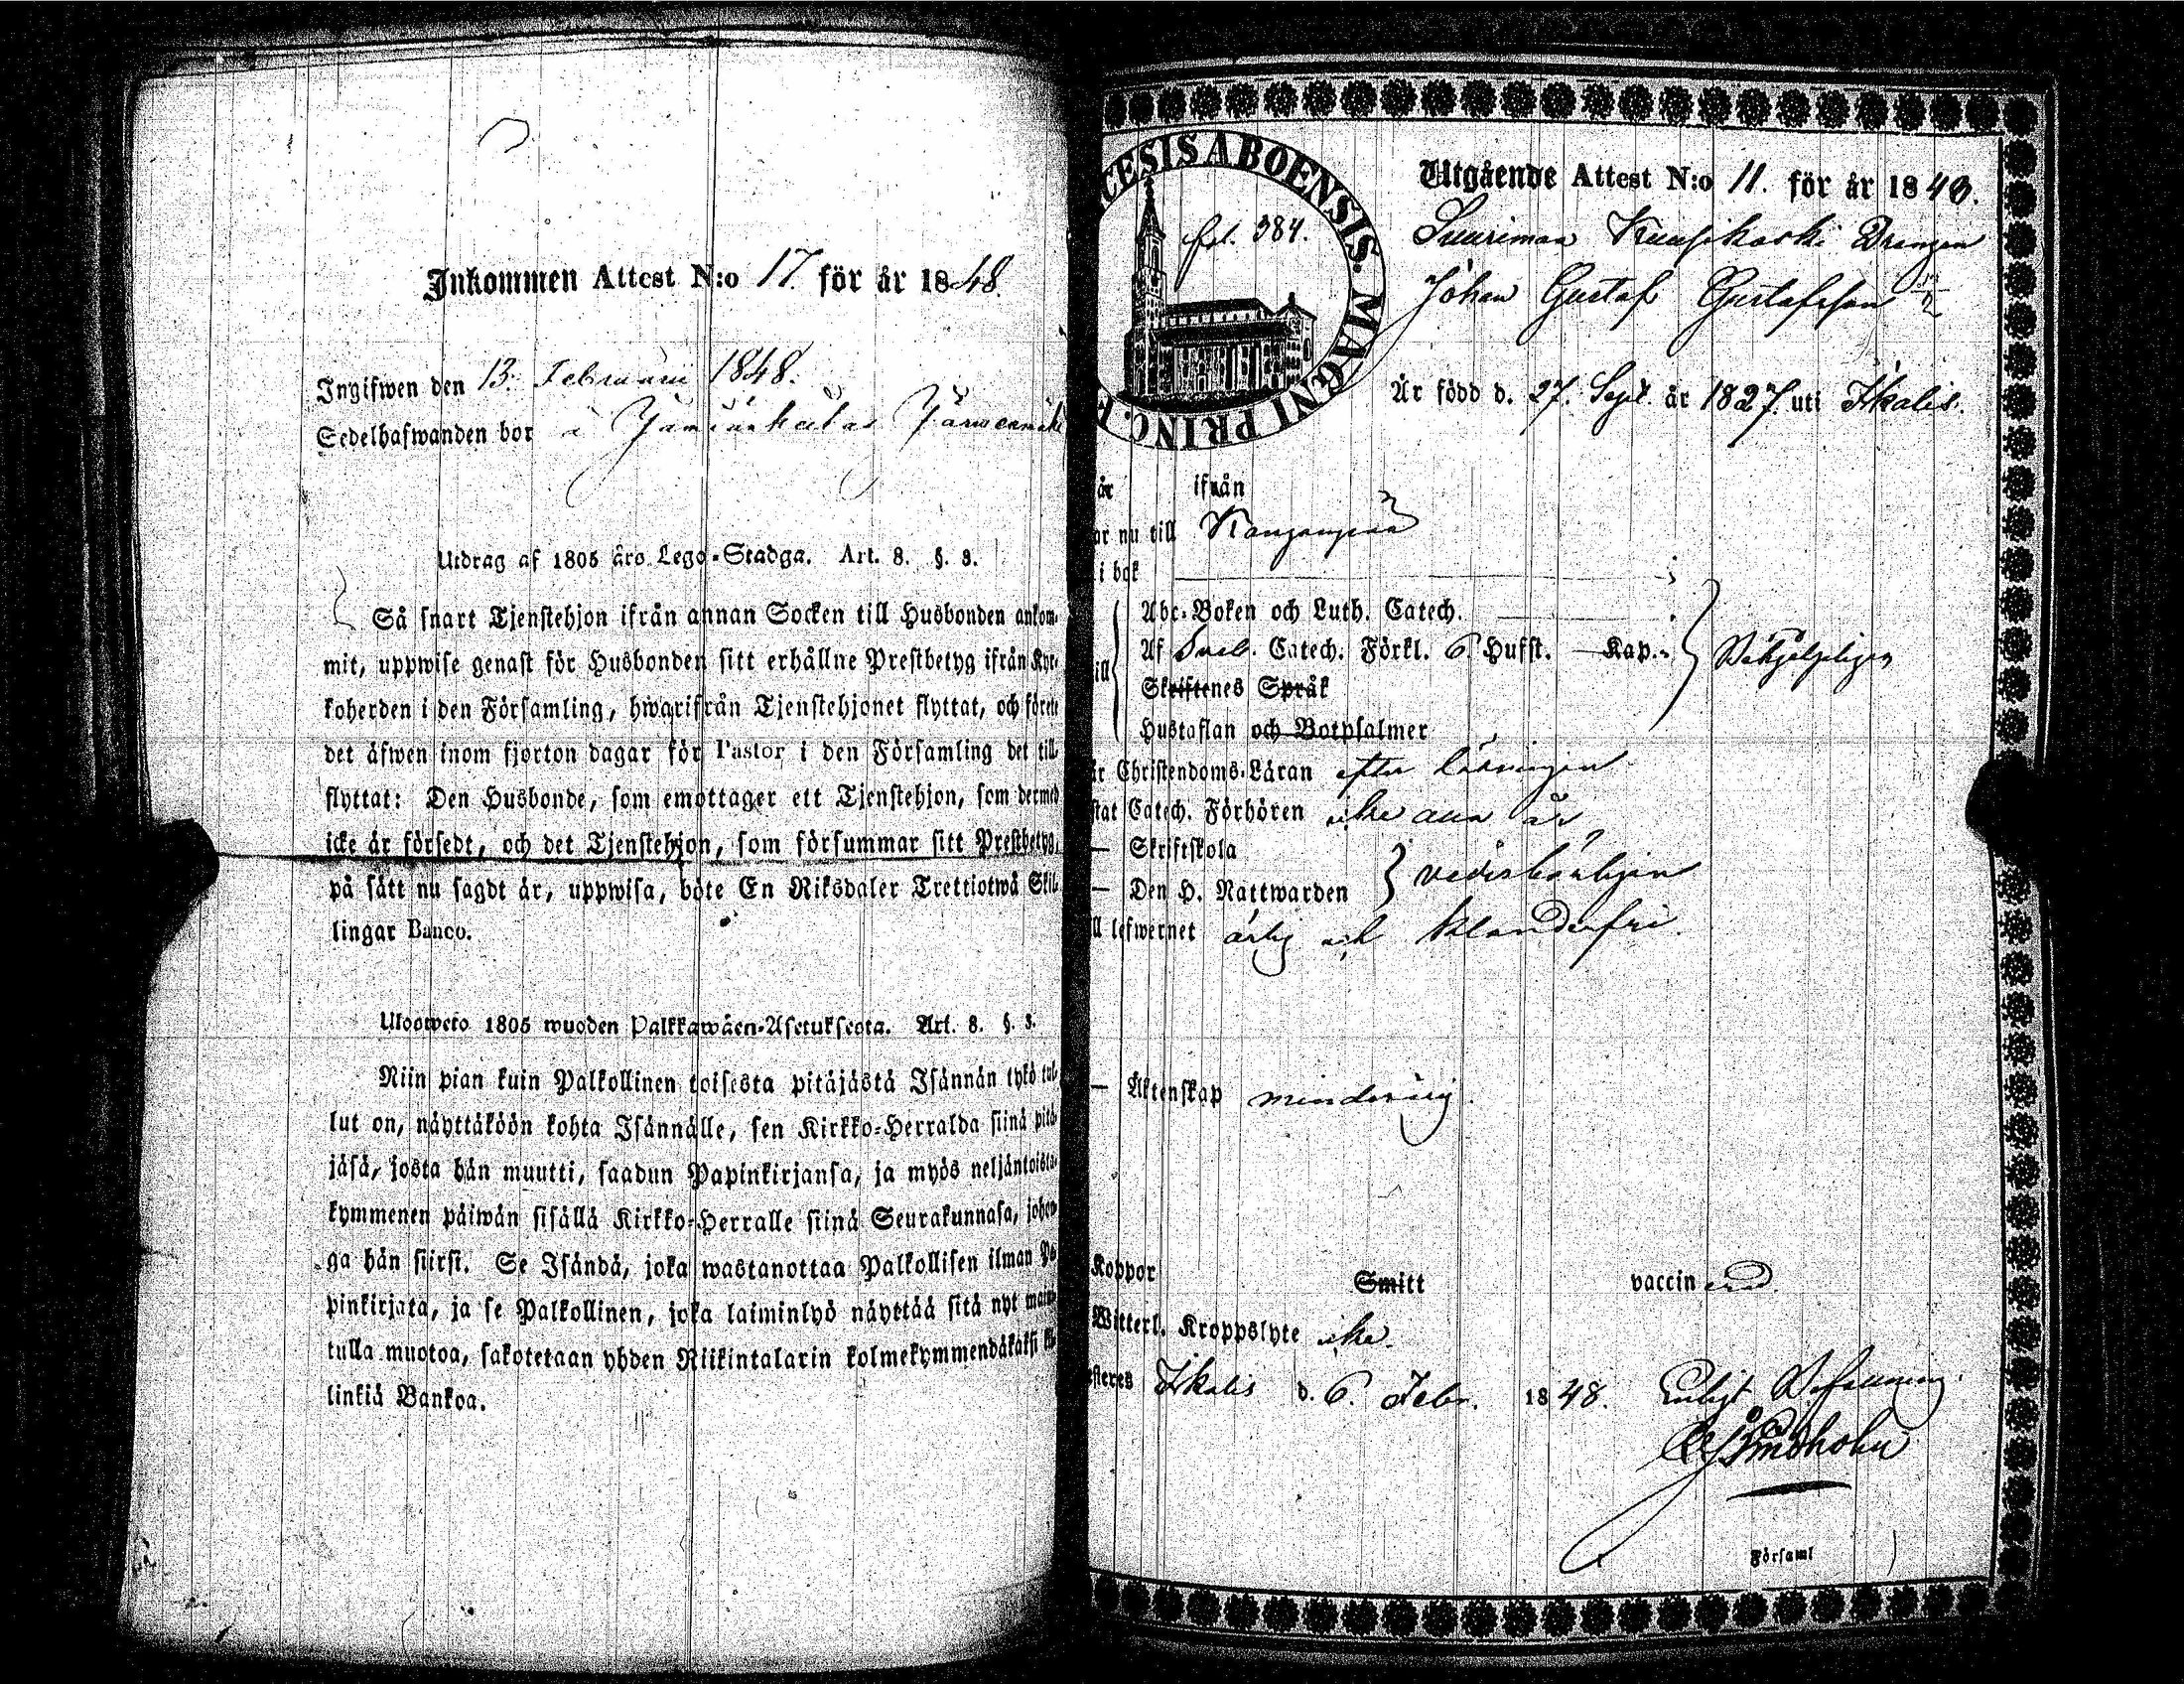 Inkommen Attest N:o 17. för år 1848.
Ingifwen den 13. Februarii 1848.
Sedelhafwanden bor å
Utdrag af 1805 års Lego-Stadga. Art. 8. §. 3.
Så snart Tjenstehjon ifrån annan Socken till Husbonden ankom-
mit, uppwise genast för Husbonden sitt erhållne Prestbetyg ifrån Kyr-
koherden i den Församling, hwarifrån Tjenstehjonet flyttat, och förete
det äfwen inom fjorton dagar för Pastor i den Församling det till-
flyttat: Den Husbonde, som emottager ett Tjenstehjon, som dermed
icke är försedt, och det Tjenstehjon, som försummar sitt Prestbetyg,
på sätt nu sagdt är, uppwisa, böte En Riksdaler Trettiotwå Skil-
lingar Banco.
Ulosweto 1805 wuoden Palkkawäen-Asetuksesta. Art. 8. §. 3.
Niin pian kuin Palkollinen toisesta pitäjästä Isännän tykö tul-
lut on, näyttäköön kohta Isännälle, sen Kirkko-Herralda siinä pitä-
jäsä, josta hän muutti, saadun Papinkirjansa, ja myös neljäntoista-
kymmenen päiwän sisällä Kirkko-Herralle siinä Seurakunnasa, johon-
ga hän siirsi. Se Isändä, joka wastanottaa Palkollisen ilman Pa-
pinkirjata, ja se Palkollinen, joka laiminlyö näyttää sitä nyt mainit-
tulla muotoa, sakotetaan yhden Riikintalarin kolmekymmendäkaksi kil-
linkiä Bankoa.
CESIS ABOENSIS. MAGNI PRINC. F
fol. 384.
Utgående Attest N:o 11. för år 1848.
Suurimaa Kuusikoski Drängen
Johan Gustaf Gustafsson
Är född d. 27. Sept. år 1827. uti Ikalis.
år ifrån
ar nu till Kangasperä
i bok
Abc-Boken och Luth. Catech.
Af Sveb. Catech. Förkl. 6. Hufst. Kap.
Skriftenes Språk
Hustaflan och Botpsalmer
är Christendoms-Läran efter läsningen
stat Catech. Förhören icke
— Skriftskola
— Den H. Nattwarden
ll lefwernet ärlig och klanderfri.
— Äktenskap minderårig.
Koppor Smitt vaccinerad.
Witterl. Kroppslyte icke.
esteres Ikalis d. 6. Febr. 1848. Enligt
Församl